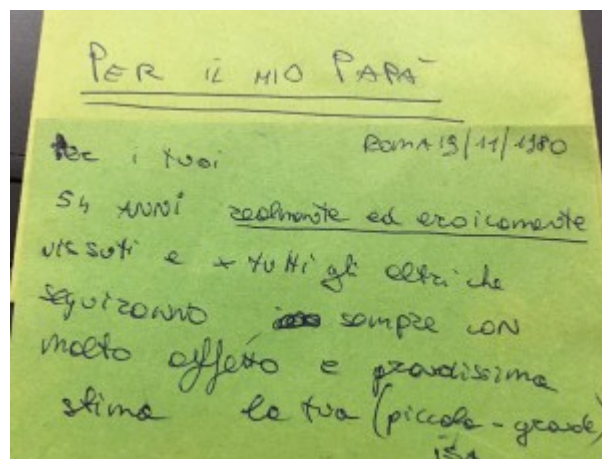 PER IL MIO PAPÀ
ROMA 19/11/1980
Per i tuoi
54 ANNI realmente ed eroicamente
vissuti e x tutti gli altri che
seguiranno sempre con
molto affetto e grandissima
stima la tua (piccola-grande)
ISA